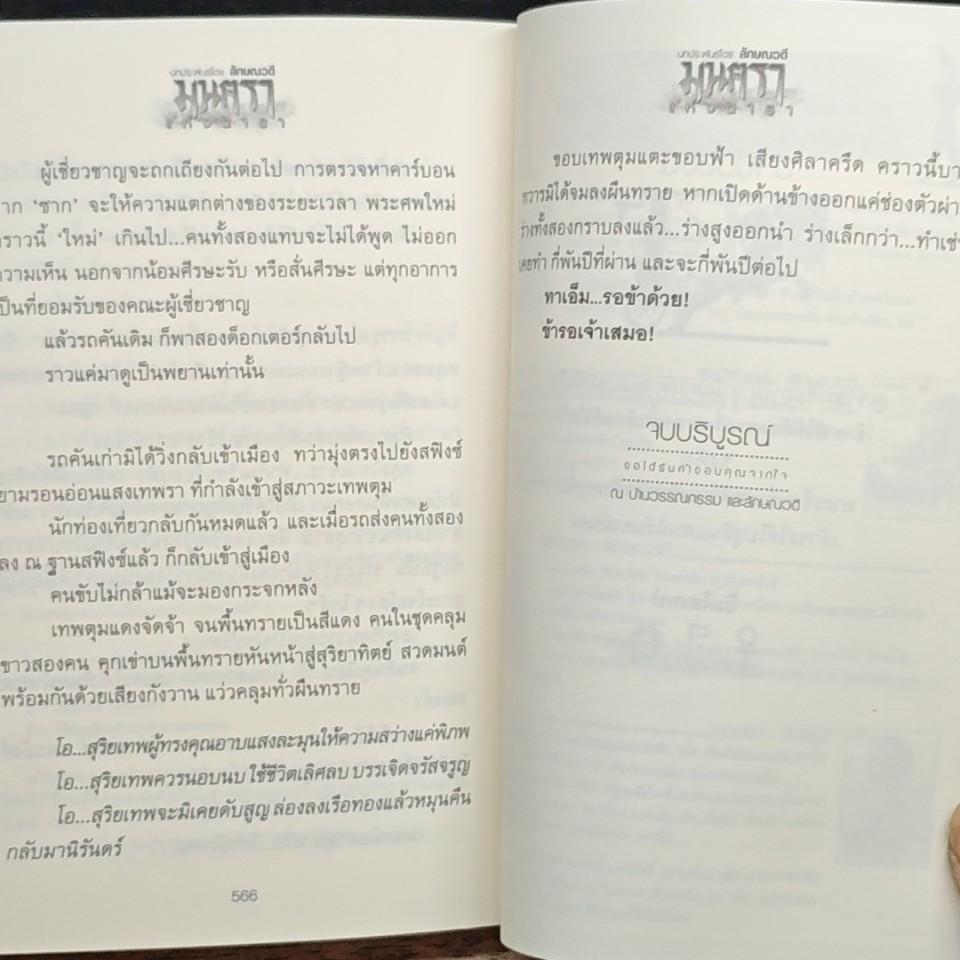 บทประพันธ์โดย ลักษณวดี
มนตรา
ผู้เชี่ยวชาญจะถกเถียงกันต่อไป การตรวจหาคาร์บอน
จาก ‘ซาก’ จะให้ความแตกต่างของระยะเวลา พระศพใหม่
คราวนี้ ‘ใหม่’ เกินไป...คนทั้งสองแทบจะไม่ได้พูด ไม่ออก
ความเห็น นอกจากน้อมศีรษะรับ หรือสั่นศีรษะ แต่ทุกอาการ
เป็นที่ยอมรับของคณะผู้เชี่ยวชาญ
แล้วรถคันเดิม ก็พาสองด็อกเตอร์กลับไป
ราวแค่มาดูเป็นพยานเท่านั้น
รถคันเก่ามิได้วิ่งกลับเข้าเมือง ทว่ามุ่งตรงไปยังสฟิงซ์
ยามรอนอ่อนแสงเทพรา ที่กำลังเข้าสู่สภาวะเทพตุม
นักท่องเที่ยวกลับกันหมดแล้ว และเมื่อรถส่งคนทั้งสอง
ลง ณ ฐานสฟิงซ์แล้ว ก็กลับเข้าสู่เมือง
คนขับไม่กล้าแม้จะมองกระจกหลัง
เทพตุมแดงจัดจ้า จนพื้นทรายเป็นสีแดง คนในชุดคลุม
ขาวสองคน คุกเข่าบนพื้นทรายหันหน้าสู่สุริยาทิตย์ สวดมนต์
พร้อมกันด้วยเสียงกังวาน แว่วคลุมทั่วผืนทราย
โอ...สุริยเทพผู้ทรงคุณอาบแสงละมุนให้ความสว่างแค่พิภพ
โอ...สุริยเทพควรนอบนบ ใช้ชีวิตเลิศลบ บรรเจิดจรัสจรูญ
โอ...สุริยเทพจะมิเคยดับสูญ ล่องลงเรือทองแล้วหมุนคืน
กลับมานิรันดร์
566
บทประพันธ์โดย ลักษณวดี
มนตรา
ขอบเทพตุมแตะขอบฟ้า เสียงศิลาครืด คราวนี้บา
ทวารมิได้จมลงผืนทราย หากเปิดด้านข้างออกแค่ช่องตัวผ่า
ร่างทั้งสองกราบลงแล้ว...ร่างสูงออกนำ ร่างเล็กกว่า...ทำเช่
เคยทำ กี่พันปีที่ผ่าน และจะกี่พันปีต่อไป
ทาเอ็ม...รอข้าด้วย!
ข้ารอเจ้าเสมอ!
จบบริบูรณ์
ขอได้รับคำขอบคุณจากใจ
ณ บ้านวรรณกรรม และลักษณวดี